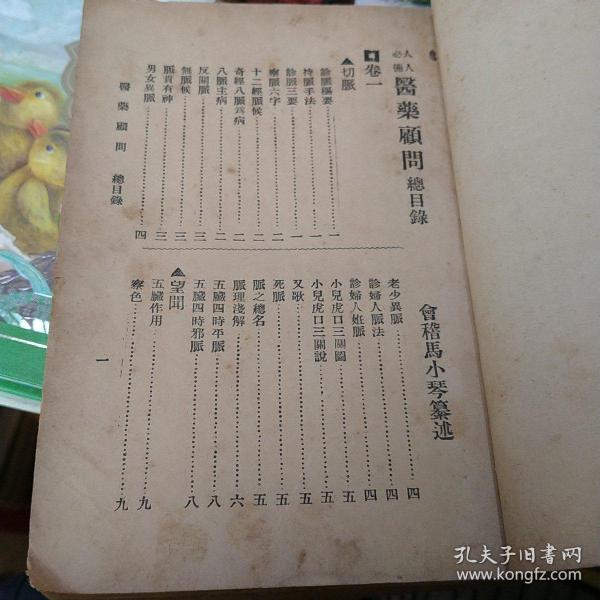 人人必備 醫藥顧問 總目錄
會稽馬小琴纂述
卷一
▲切脈
診脈樞要……一
持脈手法……一
診脈三要……一
察脈六字……二
十二經脈候……二
奇經八脈爲病……二
八脈主病……二
反關脈……三
無脈候……三
脈貴有神……三
男女異脈……四
老少異脈……四
診婦人脈法……四
診婦人姙脈……四
小兒虎口三關圖……五
小兒虎口三關說……五
又歌……五
死脈……五
脈之總名……五
脈理淺解……六
五臟四時平脈……八
五臟四時邪脈……八
▲望聞
五臟作用……九
察色……九
醫藥顧問 總目錄
一
孔夫子旧书网
www.kongfz.com